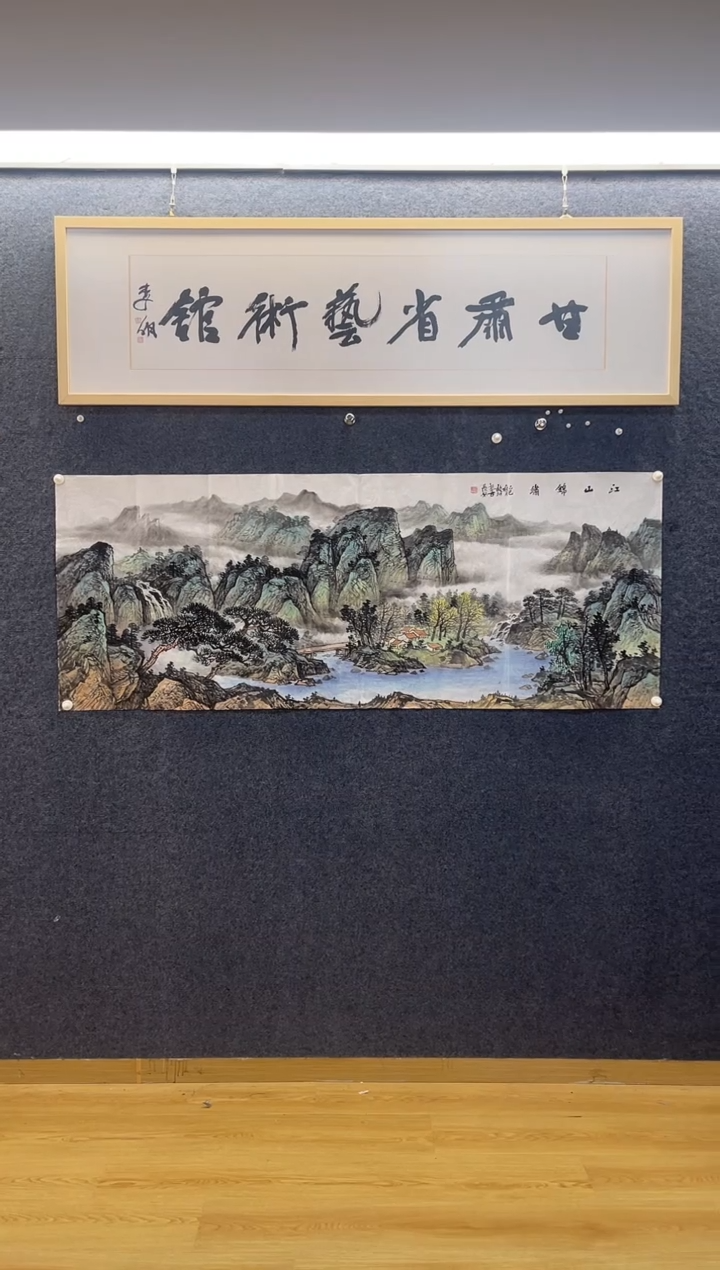 甘肅省藝術館
江山錦繡